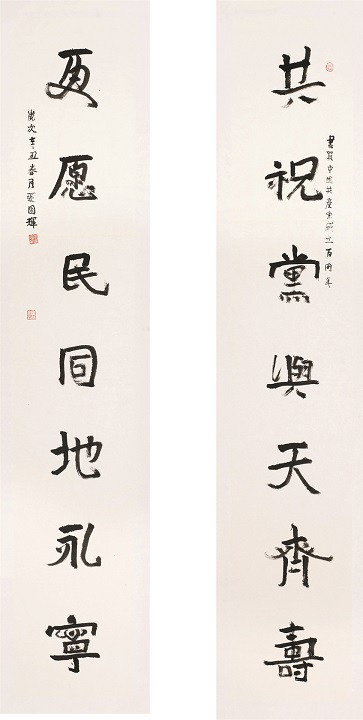 共祝黨與天齊壽
書賀中國共產黨成立百周年
更愿民同地永寧
歲次辛丑春月